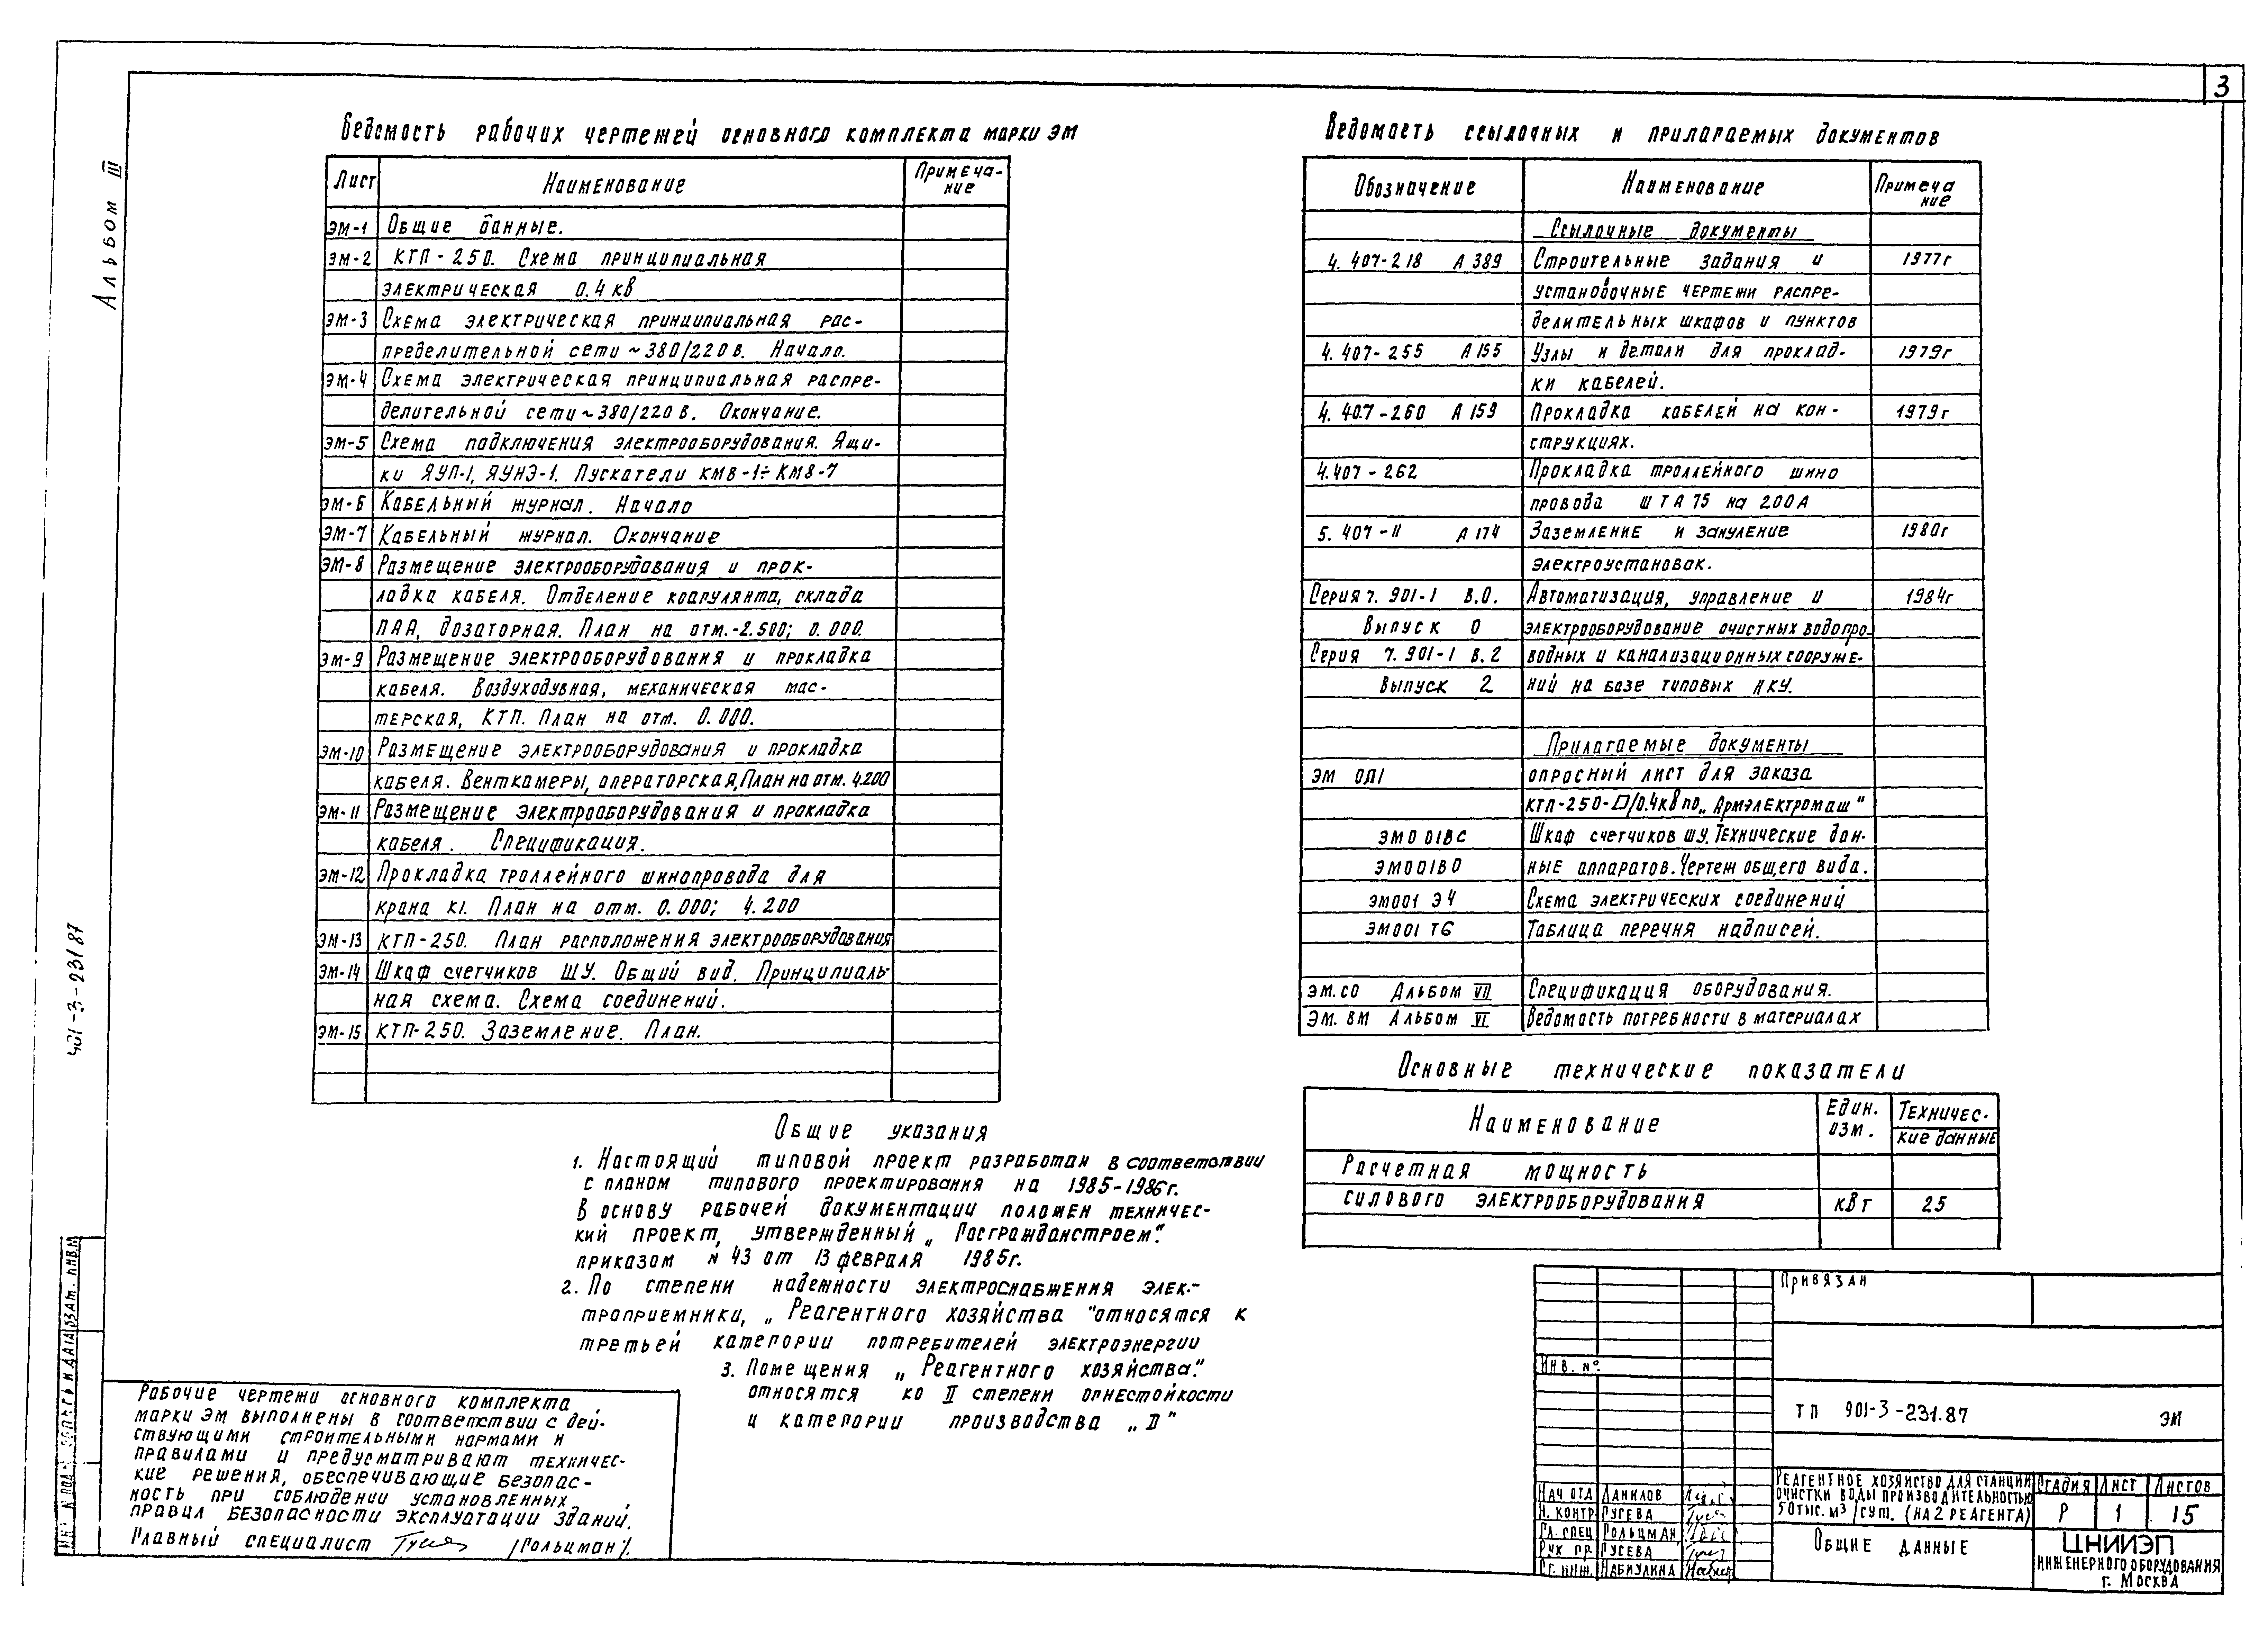 3
Альбом III
Ведомость рабочих чертежей основного комплекта марки ЭМ
Лист Наименование Примеча-
ние
ЭМ-1 Общие данные.
ЭМ-2 КТП-250. Схема принципиальная
электрическая 0.4 кв
ЭМ-3 Схема электрическая принципиальная рас-
пределительной сети ~380/220 в. Начало.
ЭМ-4 Схема электрическая принципиальная распре-
делительной сети ~380/220 в. Окончание.
ЭМ-5 Схема подключения электрооборудования. Ящи-
ки ЯУП-1, ЯУНЭ-1. Пускатели КМ8-1÷КМ8-7
ЭМ-6 Кабельный журнал. Начало
ЭМ-7 Кабельный журнал. Окончание
ЭМ-8 Размещение электрооборудования и прок-
ладка кабеля. Отделение коагулянта, склада
ПАА, дозаторная. План на отм.-2.500; 0.000.
ЭМ-9 Размещение электрооборудования и прокладка
кабеля. Воздуходувная, механическая мас-
терская, КТП. План на отм. 0.000.
ЭМ-10 Размещение электрооборудования и прокладка
кабеля. Венткамеры, операторская, План на отм. 4.200
ЭМ-11 Размещение электрооборудования и прокладка
кабеля. Спецификация.
ЭМ-12 Прокладка троллейного шинопровода для
крана к1. План на отм. 0.000; 4.200
ЭМ-13 КТП-250. План расположения электрооборудования
ЭМ-14 Шкаф счетчиков ШУ. Общий вид. Принципиаль-
ная схема. Схема соединений.
ЭМ-15 КТП-250. Заземление. План.
Ведомость ссылочных и прилагаемых документов
Обозначение Наименование Примеча
ние
Ссылочные документы
4.407-218 А389 Строительные задания и 1977г
установочные чертежи распре-
делительных шкафов и пунктов
4.407-255 А155 Узлы и детали для проклад- 1979г
ки кабелей.
4.407-260 А159 Прокладка кабелей на кон- 1979г
струкциях.
4.407-262 Прокладка троллейного шино
провода ШТА 75 на 200А
5.407-11 А174 Заземление и зануление 1980г
электроустановок.
Серия 7.901-1 В.0. Автоматизация, управление и 1984г
Выпуск 0 электрооборудование очистных водопро-
Серия 7.901-1 в.2 водных и канализационных сооруже-
Выпуск 2 ний на базе типовых НКУ.
Прилагаемые документы
ЭМ ОЛ1 опросный лист для заказа
КТП-250-□/0.4кв по „Армэлектромаш"
ЭМ001ВС Шкаф счетчиков ШУ. Технические дан-
ЭМ001ВО ные аппаратов. Чертеж общего вида.
ЭМ001 Э4 Схема электрических соединений
ЭМ001 Т6 Таблица перечня надписей.
ЭМ.СО Альбом VII Спецификация оборудования.
ЭМ. ВМ Альбом VI Ведомость потребности в материалах
Основные технические показатели
Наименование Един. изм. Техничес-
кие данные
Расчетная мощность
силового электрооборудования кВт 25
Общие указания
1. Настоящий типовой проект разработан в соответствии
с планом типового проектирования на 1985-1986г.
В основу рабочей документации положен техничес-
кий проект, утвержденный „Госгражданстроем".
приказом N 43 от 13 февраля 1985г.
2. По степени надежности электроснабжения элек-
троприемники, „Реагентного хозяйства" относятся к
третьей категории потребителей электроэнергии
3. Помещения „Реагентного хозяйства".
относятся ко II степени огнестойкости
и категории производства „Д"
Рабочие чертежи основного комплекта
марки ЭМ выполнены в соответствии с дей-
ствующими строительными нормами и
правилами и предусматривают техничес-
кие решения, обеспечивающие безопас-
ность при соблюдении установленных
правил безопасности эксплуатации зданий.
Главный специалист /Гольцман/.
901-3-231 87
Взам. инв.N
Привязан
Инв. №
ТП 901-3-231.87 ЭМ
Нач отд Данилов
Н. контр. Гусева
Гл. спец Гольцман
Рук гр. Гусева
Ст. инж. Набиулина
Реагентное хозяйство для станции
очистки воды производительностью
50тыс. м³/сут. (на 2 реагента)
Стадия Лист Листов
Р 1 15
Общие данные
ЦНИИЭП
инженерного оборудования
г. Москва